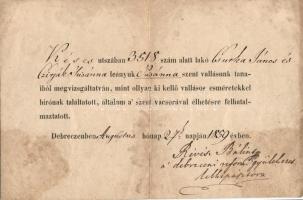 Késes utszában 3518 szám alatt lakó Csurka János és
Czigák Zsuzsánna leányuk Zsuzsánna szent vallásunk tana-
iból megvizsgáltatván, mint ollyan ki kellő vallásos esméretekkel
birónak találtatott, általam a' szent vacsorával élhetésre felhatal-
maztatott.
Debreczenben, Augustus hónap 27. napján 1859 évben.
Révész Bálint
a' debreczeni reform. gyülekezet
lelkipásztora